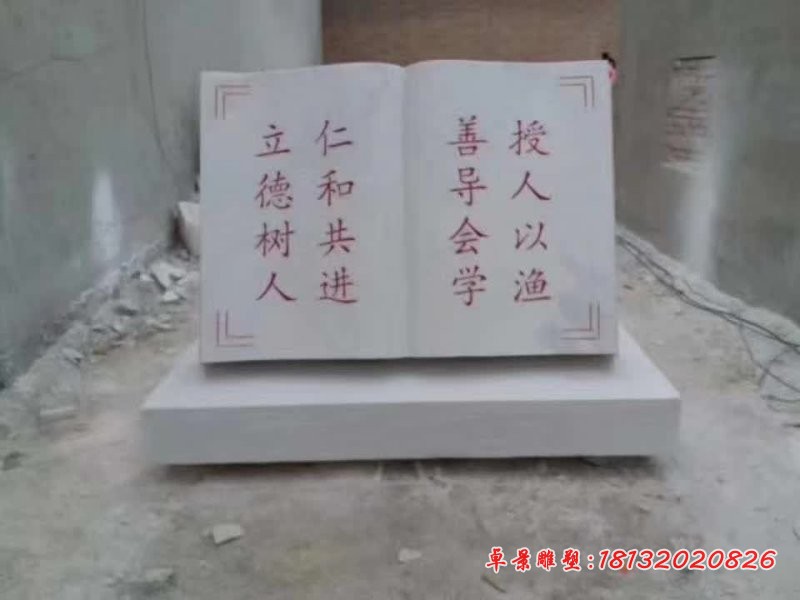 授人以渔
善导会学
仁和共进
立德树人
卓景雕塑:18132020826